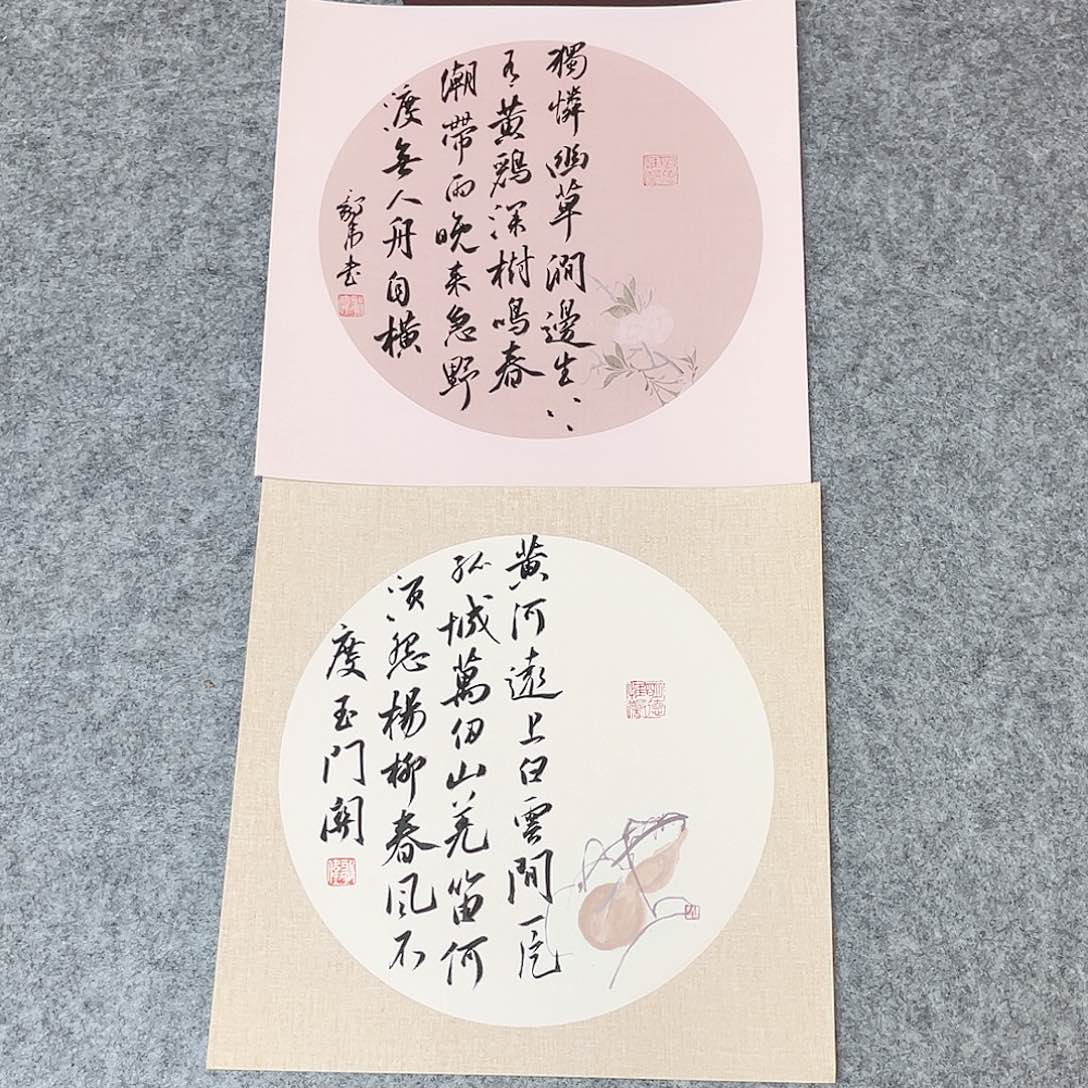 獨憐幽草澗邊生上
有黃鸝深樹鳴春
潮帶雨晚来急野
渡無人舟自横
書
黄河遠上白雲間一片
孤城萬仞山羌笛何
須怨楊柳春風不
度玉門關
明德惟馨